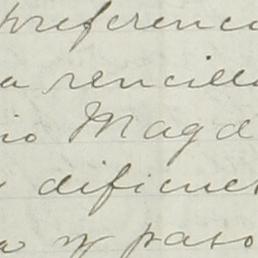 preferenc
a rencill
io Magd
dificue
a y paso